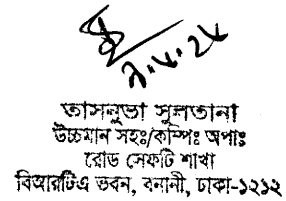 ৯.৮.২৫
তাসনুভা সুলতানা
উচ্চমান সহঃ/কম্পিঃ অপাঃ
রোড সেফটি শাখা
বিআরটিএ ভবন, বনানী, ঢাকা-১২১২